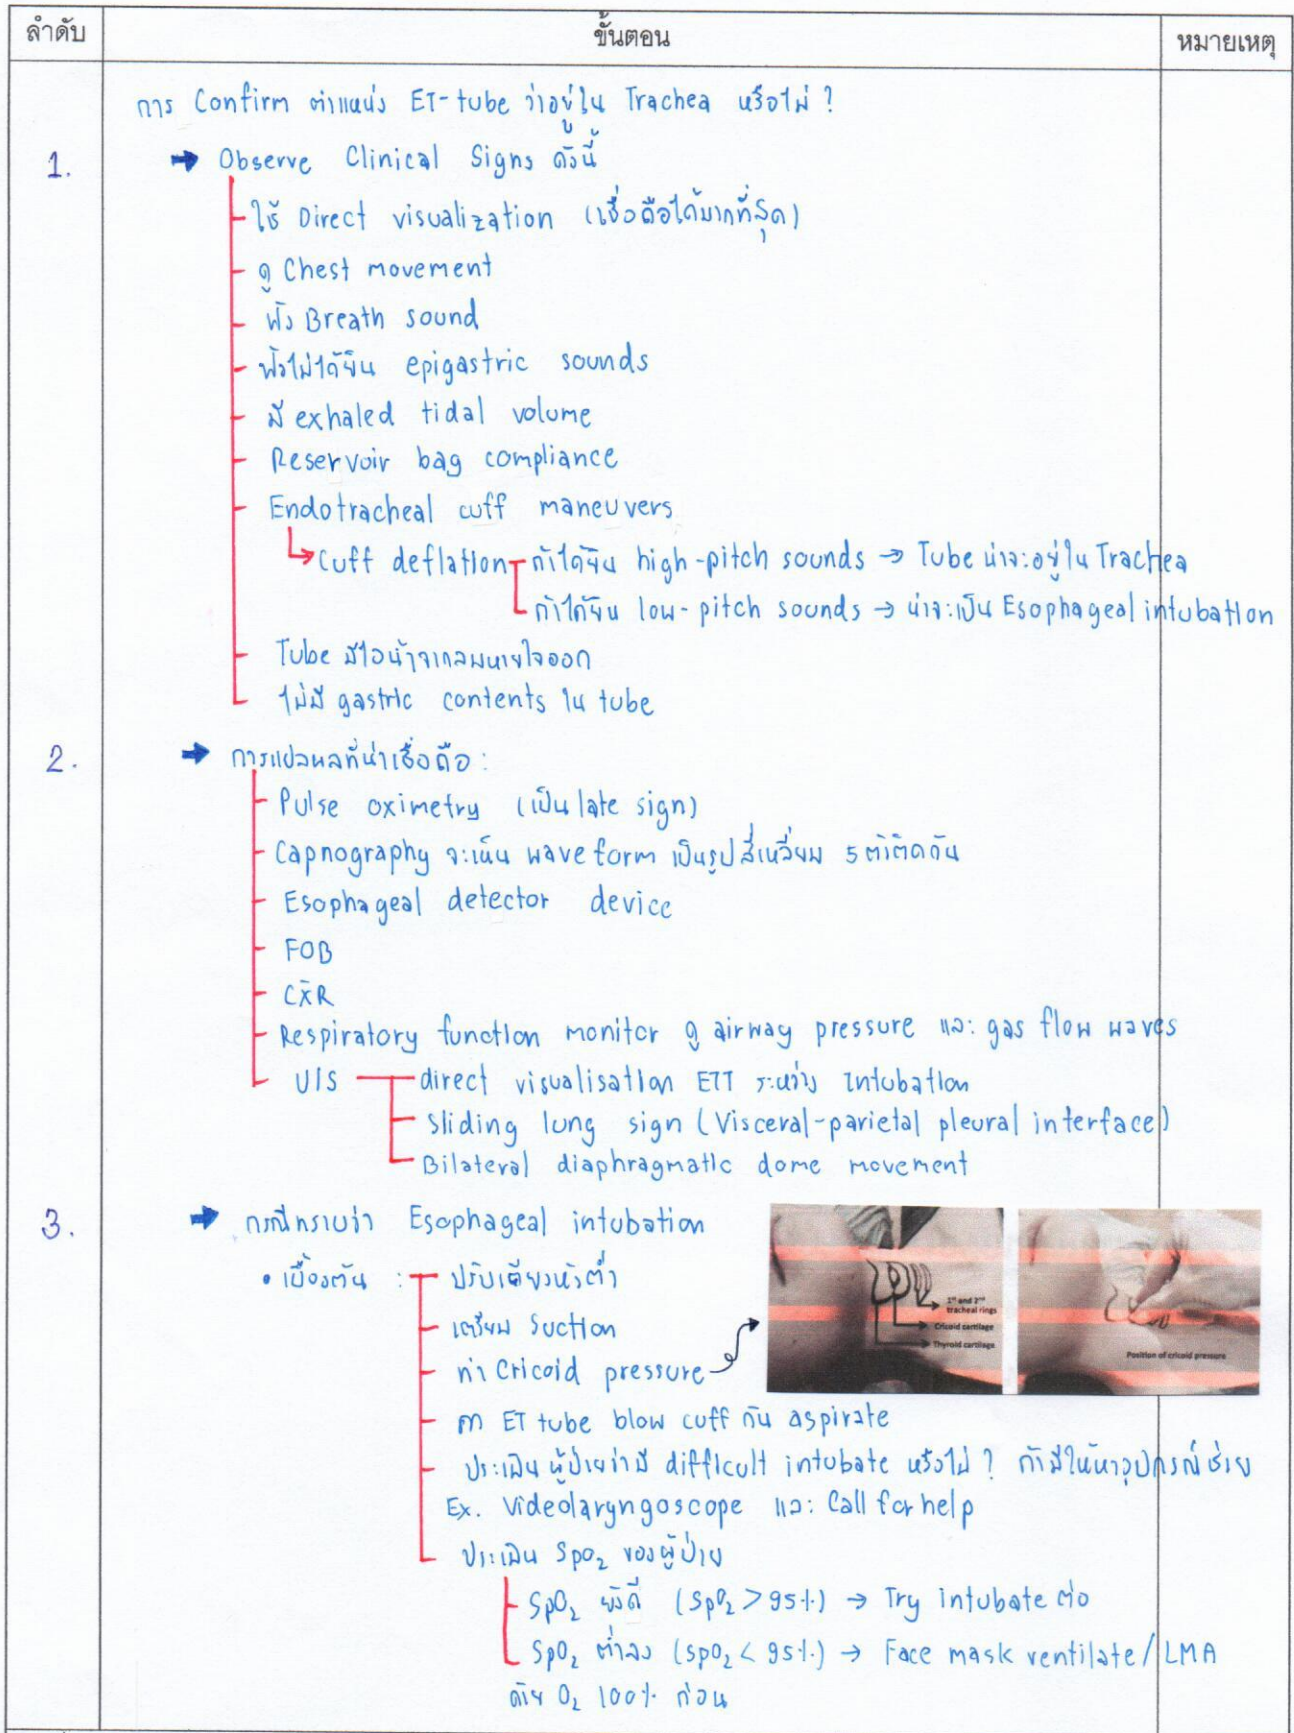 ลำดับ ขั้นตอน หมายเหตุ
การ Confirm ตำแหน่ง ET-tube ว่าอยู่ใน Trachea หรือไม่ ?
1. → Observe Clinical Signs ดังนี้
- ใช้ Direct visualization (เชื่อถือได้มากที่สุด)
- ดู Chest movement
- ฟัง Breath sound
- ฟังไม่ได้ยิน epigastric sounds
- มี exhaled tidal volume
- Reservoir bag compliance
- Endotracheal cuff maneuvers
Cuff deflation - ถ้าได้ยิน high-pitch sounds → Tube น่าจะอยู่ใน Trachea
ถ้าได้ยิน low-pitch sounds → น่าจะเป็น Esophageal intubation
- Tube มีไอน้ำจากลมหายใจออก
- ไม่มี gastric contents ใน tube
2. → การแปลผลที่น่าเชื่อถือ :
- Pulse oximetry (เป็น late sign)
- Capnography จะเห็น wave form เป็นรูปสี่เหลี่ยม 5 ตัวติดกัน
- Esophageal detector device
- FOB
- CXR
- Respiratory function monitor ดู airway pressure และ gas flow waves
- U/S - direct visualisation ETT ระหว่าง Intubation
- Sliding lung sign (Visceral-parietal pleural interface)
- Bilateral diaphragmatic dome movement
3. → กรณีทราบว่า Esophageal intubation
• เบื้องต้น : - ปรับเตียงหัวต่ำ
- เตรียม Suction
- ทำ Cricoid pressure
1st and 2nd tracheal rings
Cricoid cartilage
Thyroid cartilage
Position of cricoid pressure
- คา ET tube blow cuff กัน aspirate
- ประเมินผู้ป่วยว่ามี difficult intubate หรือไม่ ? ถ้ามีให้หาอุปกรณ์ช่วย
Ex. Videolaryngoscope และ Call for help
- ประเมิน SpO2 ของผู้ป่วย
- SpO2 ยังดี (SpO2 > 95%) → Try intubate ต่อ
- SpO2 ต่ำลง (SpO2 < 95%) → Face mask ventilate / LMA
ด้วย O2 100% ก่อน